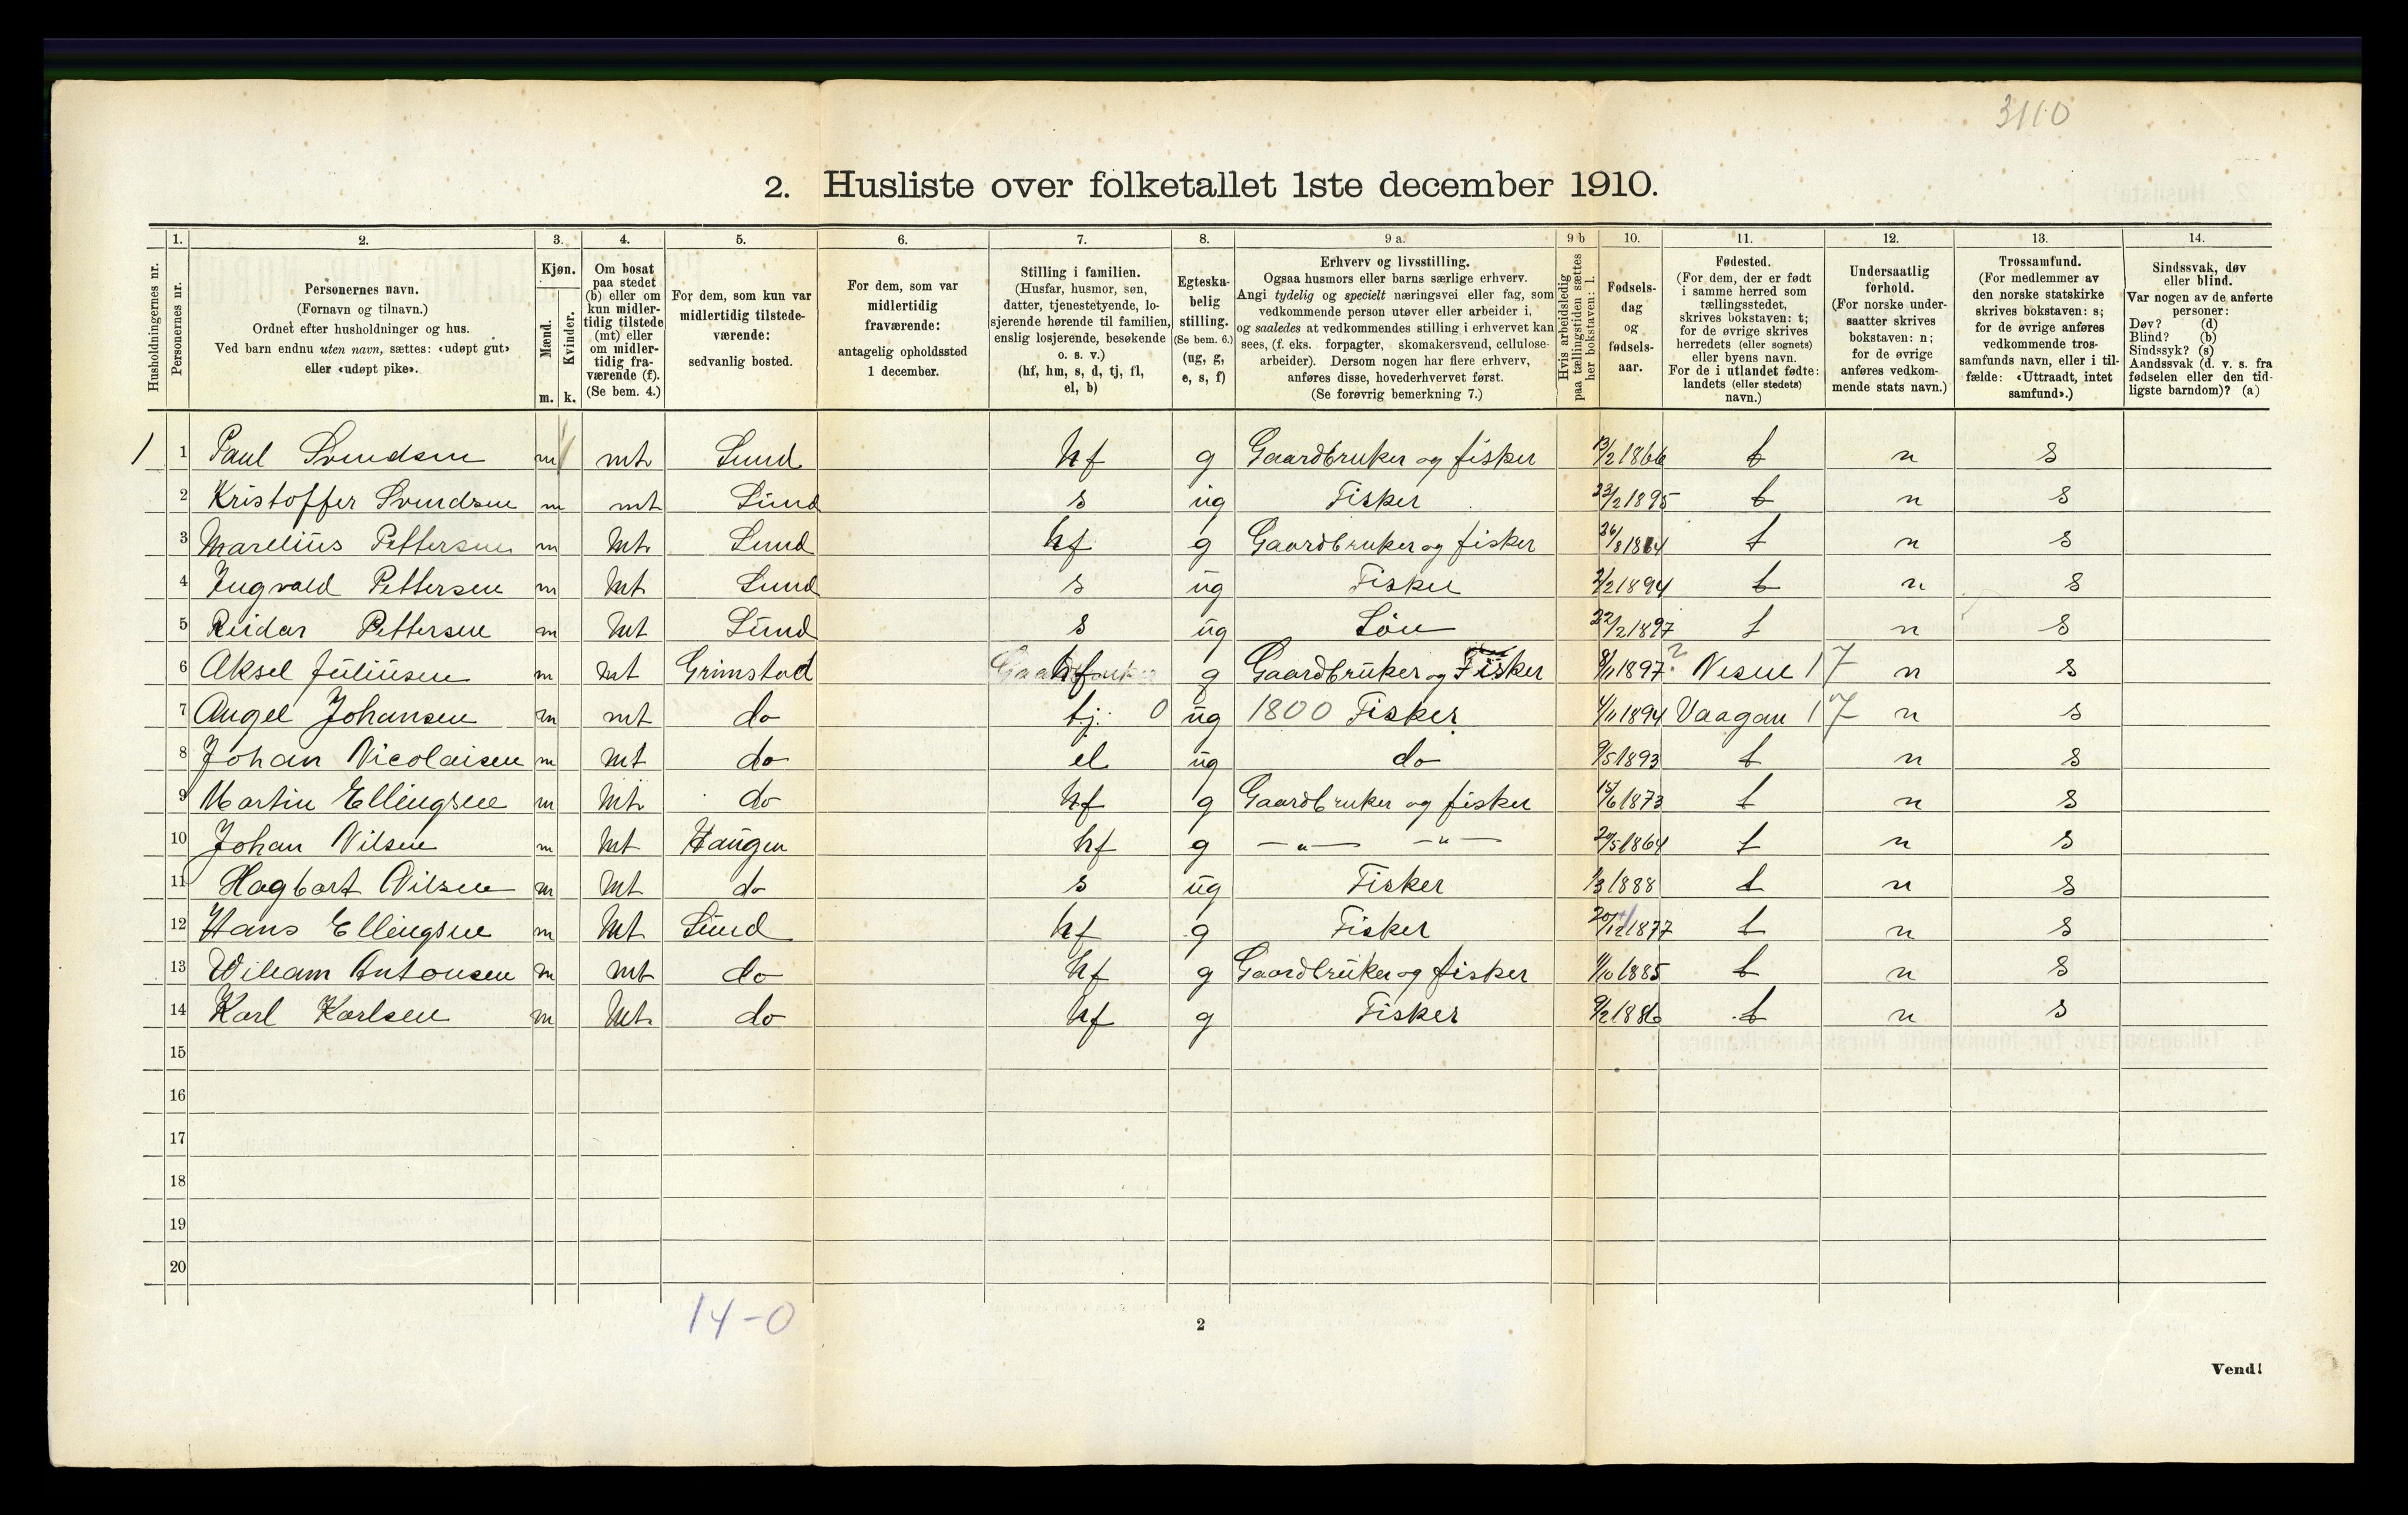 3110
2. Husliste over folketallet 1ste december 1910.
Husholdningernes nr.
1.
Personernes nr.
2.
Personernes navn.
(Fornavn og tilnavn.)
Ordnet efter husholdninger og hus.
Ved barn endnu uten navn, sættes: «udøpt gut»
eller «udøpt pike».
3.
Kjøn.
Mænd.
Kvinder.
m. k.
4.
Om bosat
paa stedet
(b) eller om
kun midler-
tidig tilstede
(mt) eller
om midler-
tidig fra-
værende (f).
(Se bem. 4.)
5.
For dem, som kun var
midlertidig tilstede-
værende:
sedvanlig bosted.
6.
For dem, som var
midlertidig
fraværende:
antagelig opholdssted
1 december.
7.
Stilling i familien.
(Husfar, husmor, søn,
datter, tjenestetyende, lo-
sjerende hørende til familien,
enslig losjerende, besøkende
o. s. v.)
(hf, hm, s, d, tj, fl,
el, b)
8.
Egteska-
belig
stilling.
(Se bem. 6.)
(ug, g,
e, s, f)
9 a.
Erhverv og livsstilling.
Ogsaa husmors eller barns særlige erhverv.
Angi tydelig og specielt næringsvei eller fag, som
vedkommende person utøver eller arbeider i,
og saaledes at vedkommendes stilling i erhvervet kan
sees, (f. eks. forpagter, skomakersvend, cellulose-
arbeider). Dersom nogen har flere erhverv,
anføres disse, hovederhvervet først.
(Se forøvrig bemerkning 7.)
9 b
Hvis arbeidsledig
paa tællingstiden sættes
her bokstaven: l.
10.
Fødsels-
dag
og
fødsels-
aar.
11.
Fødested.
(For dem, der er født
i samme herred som
tællingsstedet,
skrives bokstaven: t;
for de øvrige skrives
herredets (eller sognets)
eller byens navn.
For de i utlandet fødte:
landets (eller stedets)
navn.)
12.
Undersaatlig
forhold.
(For norske under-
saatter skrives
bokstaven: n;
for de øvrige
anføres vedkom-
mende stats navn.)
13.
Trossamfund.
(For medlemmer av
den norske statskirke
skrives bokstaven: s;
for de øvrige anføres
vedkommende tros-
samfunds navn, eller i til-
fælde: «Uttraadt, intet
samfund».)
14.
Sindssvak, døv
eller blind.
Var nogen av de anførte
personer:
Døv? (d)
Blind? (b)
Sindssyk? (s)
Aandssvak (d. v. s. fra
fødselen eller den tid-
ligste barndom)? (a)
1 1 Paul Svendsen m mt Lund hf g Gaardbruker og fisker 13/2 1866 t n s
2 Kristoffer Svendsen m mt Lund s ug Fisker 23/2 1895 t n s
3 Marelius Pettersen m mt Lund hf g Gaardbruker og fisker 26/8 1864 t n s
4 Ingvald Pettersen m mt Lund s ug Fisker 2/2 1894 t n s
5 Reidar Pettersen m mt Lund s ug Søn 22/2 1897 t n s
6 Aksel Juliusen m mt Grimstad hf g Gaardbruker og Fisker 8/11 1897 ? Nesne 17 n s
7 Angel Johansen m mt do tj. 0 ug 1800 Fisker 4/11 1894 Vaagan 17 n s
8 Johan Nicolaisen m mt do el ug do 9/5 1893 t n s
9 Martin Ellingsen m mt do hf g Gaardbruker og fisker 15/6 1873 t n s
10 Johan Nilsen m mt Haugen hf g — „ — — „ — 20/5 1864 t n s
11 Hagbart Nilsen m mt do s ug Fisker 1/3 1888 t n s
12 Hans Ellingsen m mt Lund hf g Fisker 20/12 1877 t n s
13 Wiliam Antonsen m mt do hf g Gaardbruker og fisker 4/10 1885 t n s
14 Karl Karlsen m mt do hf g Fisker 9/2 1886 t n s
15
16
17
18
19
20
14-0
2
Vend!